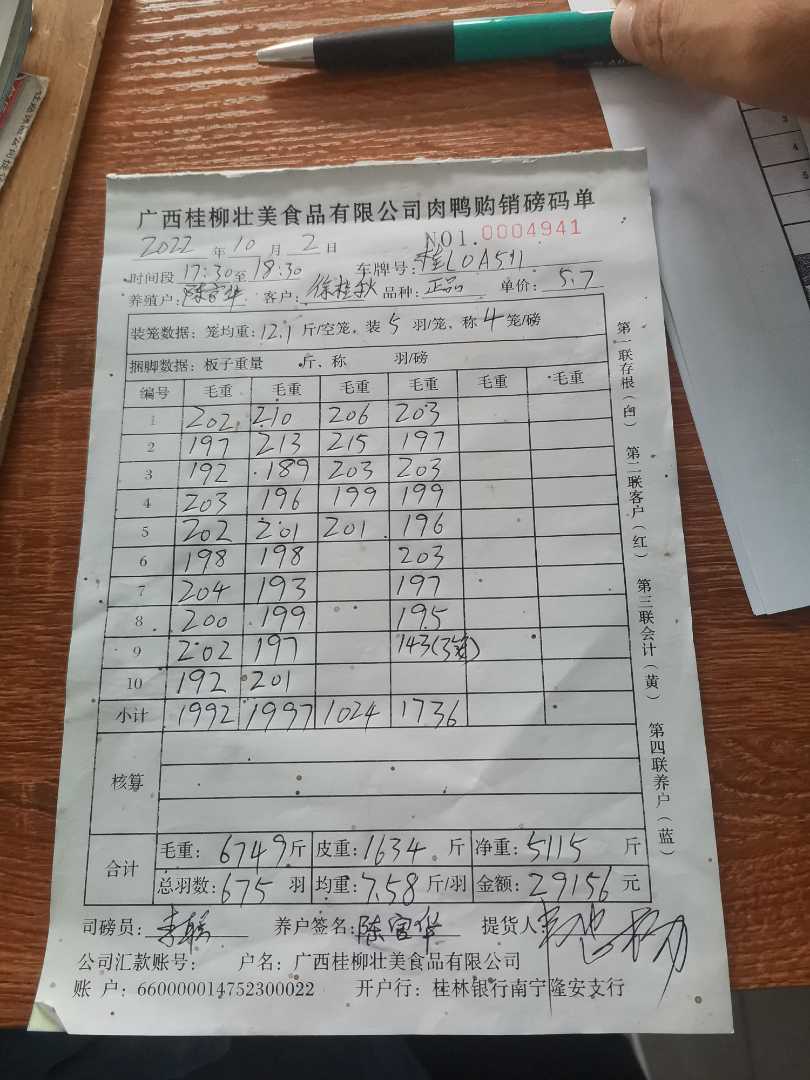 广西桂柳壮美食品有限公司肉鸭购销磅码单
2022 年 10 月 2 日 NO1. 0004941
时间段 17:30 至 18:30 车牌号: 桂L0A511
养殖户: 陈富华 客户: 徐桂秋 品种: 正品 单价: 5.7
装笼数据: 笼均重: 12.1 斤/空笼, 装 5 羽/笼、称 4 笼/磅
捆脚数据: 板子重量 斤、称 羽/磅
编号 毛重 毛重 毛重 毛重 毛重 毛重
1 202 210 206 203
2 197 213 215 197
3 192 189 203 203
4 203 196 199 199
5 202 201 201 196
6 198 198 203
7 204 193 197
8 200 199 195
9 202 197 143(3笼)
10 192 201
小计 1992 1997 1024 1736
核算
合计 毛重: 6749 斤 皮重: 1634 斤 净重: 5115 斤
总羽数: 675 羽 均重: 7.58 斤/羽 金额: 29156 元
司磅员: 养户签名: 陈富华 提货人
公司汇款账号: 户名: 广西桂柳壮美食品有限公司
账 户: 660000014752300022 开户行: 桂林银行南宁隆安支行
第一联存根(白) 第二联客户(红) 第三联会计(黄) 第四联养户(蓝)
3
4
5